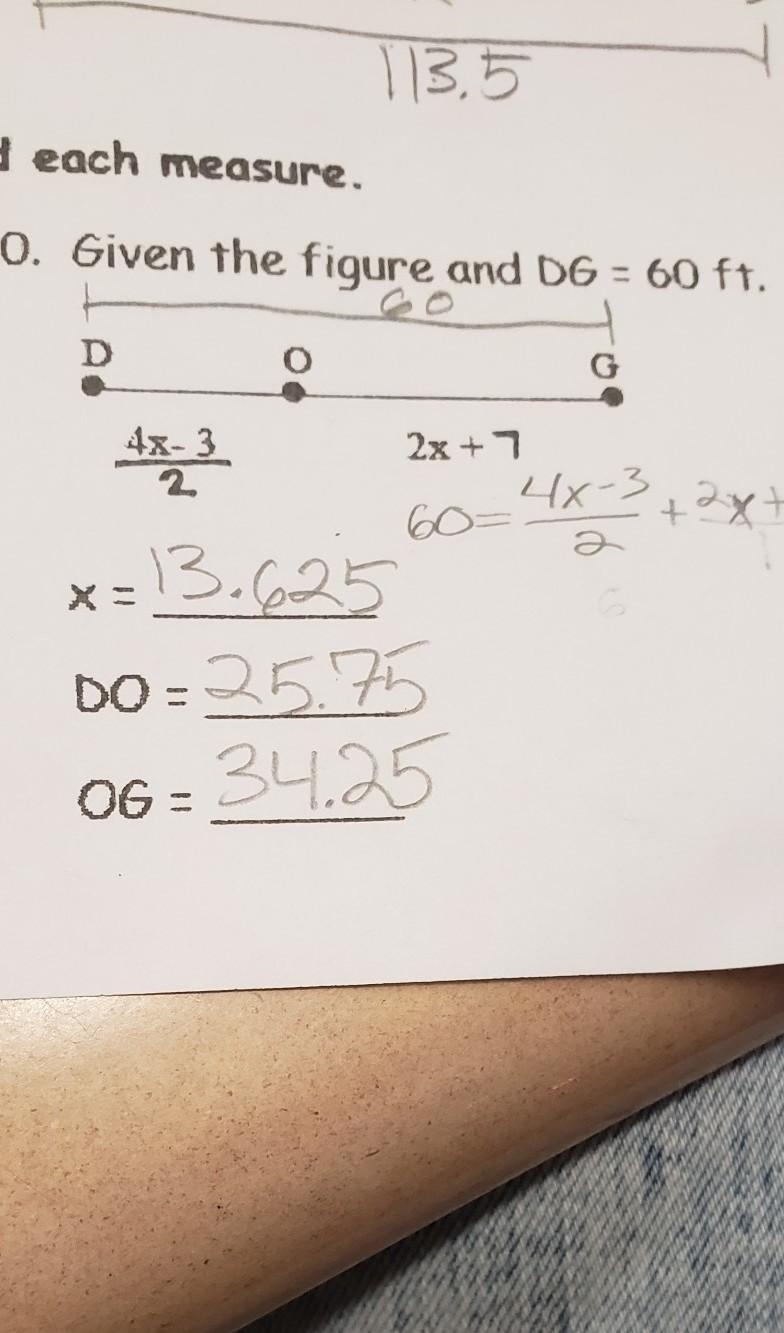 113.5
each measure.
0. Given the figure and DG = 60 ft.
60
D O G
4x-3
2
2x + 7
60 = 4x-3 + 2x +
2
x = 13.625
DO = 25.75
OG = 34.25